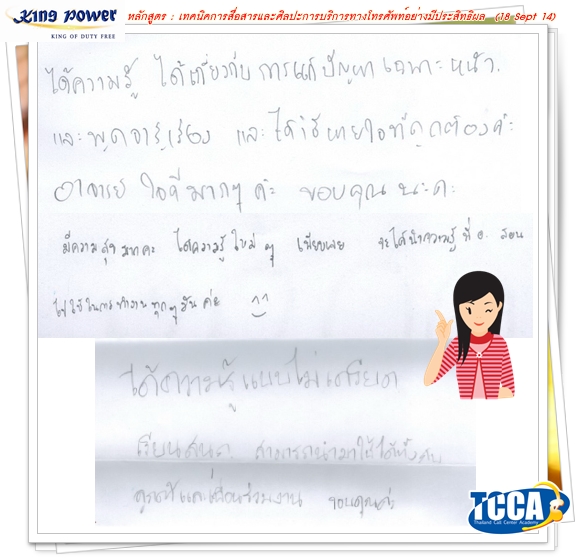 King Power
KING OF DUTY FREE
หลักสูตร : เทคนิคการสื่อสารและศิลปะการบริการทางโทรศัพท์อย่างมีประสิทธิผล (18 Sept 14)
ได้ความรู้ ได้เกี่ยวกับ การแก้ปัญหา เฉพาะหน้า.
และ พูดจารู้เรื่อง และได้ หายใจที่ถูกต้องค่ะ
อาจารย์ ใจดีมากๆ ค่ะ ขอบคุณ นะคะ
มีความสุขมากคะ ได้ความรู้ใหม่ ๆ เพียบเลย จะได้นำความรู้ ที่ อ. สอน
ไปใช้ในการทำงานทุกๆวันค่ะ ^^
ได้ความรู้แบบไม่เครียด
เรียนสนุก สามารถนำมาใช้ได้ทั้งกับ
ลูกค้าและเพื่อนร่วมงาน ขอบคุณค่ะ
TCCA
Thailand Call Center Academy